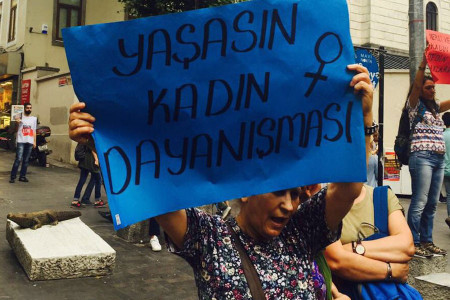 YAŞASIN
KADIN
DAYANIŞMASI